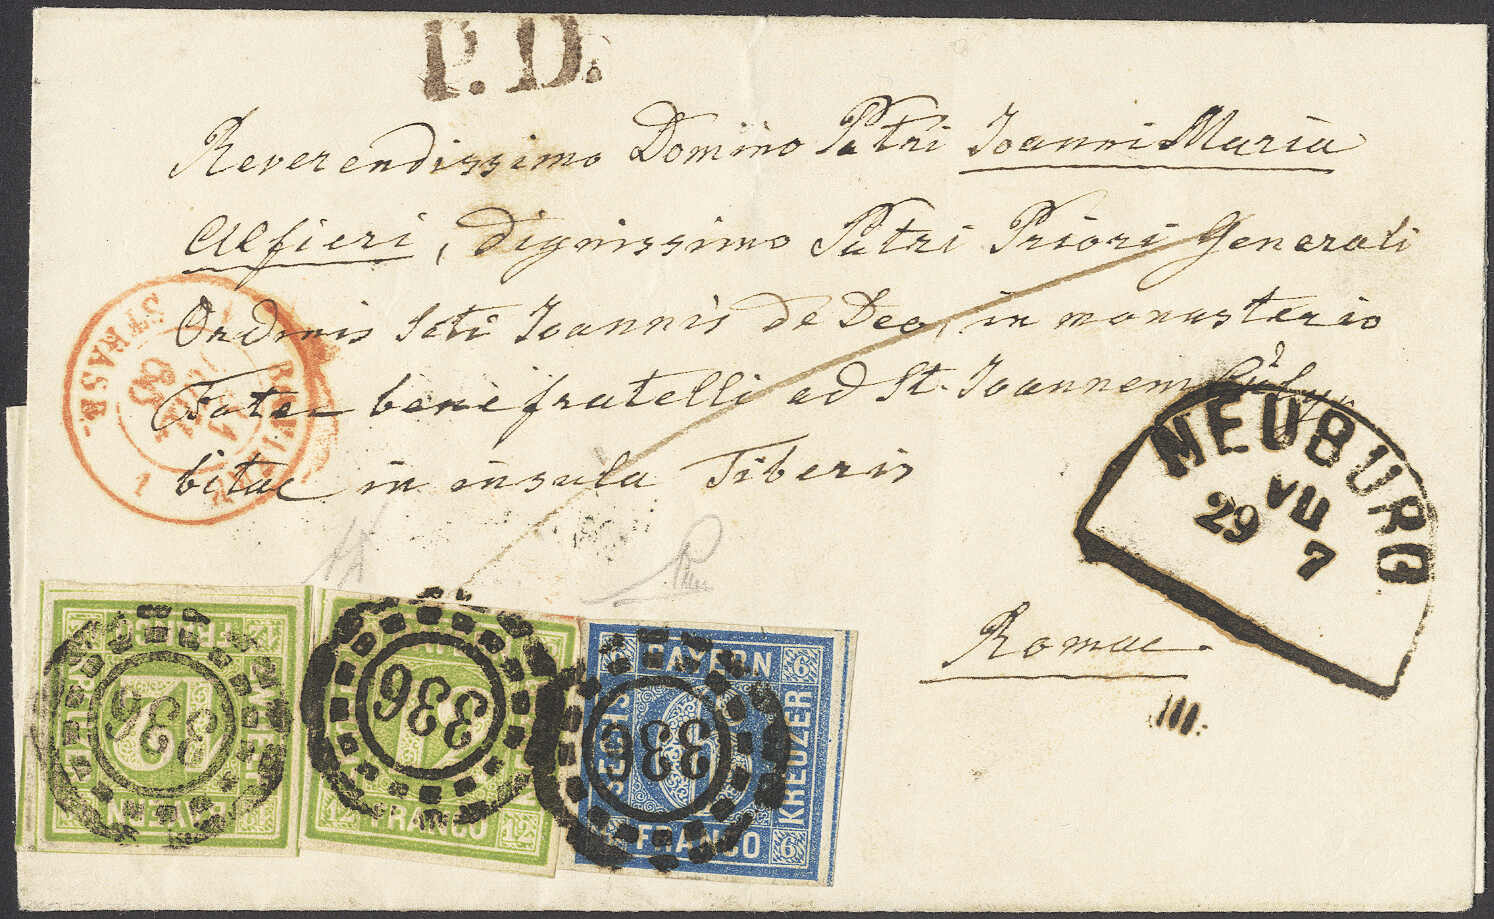 P.D.
Reverendissimo Domino Patri Joanni Maria
Alfieri, dignissimo Patri Priori Generali
Ordinis Scti Joannis de Deo, in monasterio
Fate bene fratelli ad St. Joannem Coly
bitae in insula Tiberis
Romae.
NEUBURG
VII
29 7
STRASB.
1
BAYERN
336
FRANCO
336
BAYERN
6
SECHS
KREUZER
336
FRANCO
6